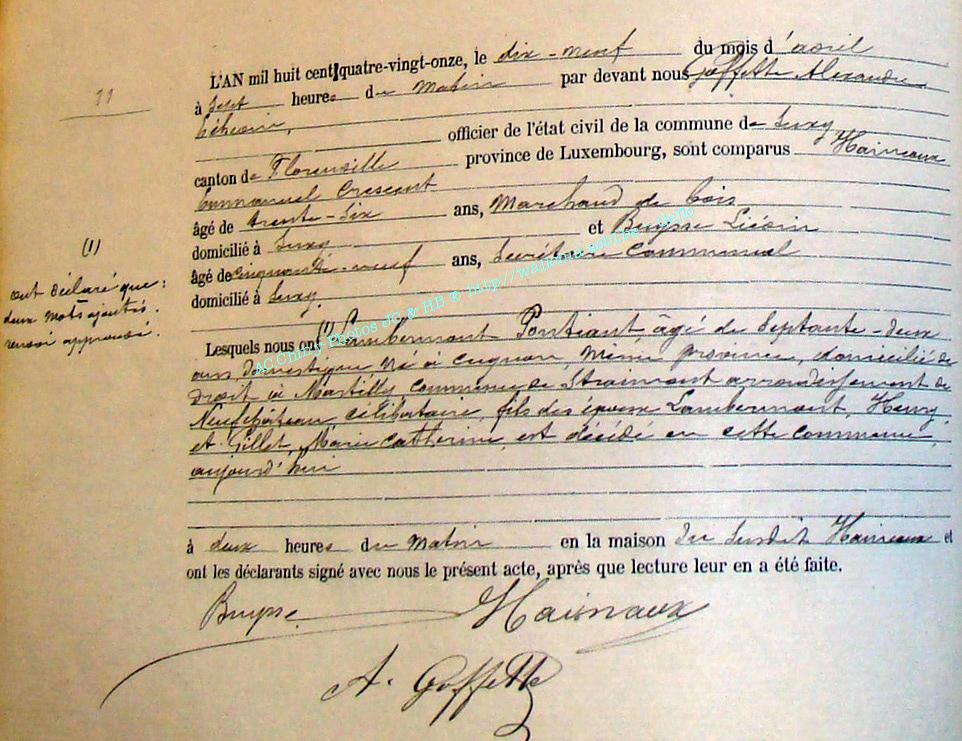 11
L'AN mil huit cent quatre-vingt-onze, le dix-neuf du mois d'avril
à sept heures du Matin par devant nous Goffette Alexandre
échevin,
officier de l'état civil de la commune de Suxy
canton de Florenville province de Luxembourg, sont comparus Hainaux
Emmanuel Crescent
âgé de trente-six ans, Marchand de bois
domicilié à Suxy et Buysse Liévin
âgé de cinquante-neuf ans, Secrétaire communal
domicilié à Suxy.
Lesquels nous ont (1) Lambermont Pontiant, âgé de Septante-deux
ans, domestique né à Cugnon, même province, domicilié de
droit à Martilly commune de Straimont arrondissement de
Neufchâteau, célibataire, fils des époux Lambermont, Henry
et Gillet, Marie Catherine, est décédé en cette commune,
aujourd'hui
à deux heures du Matin en la maison du susdit Hainaux et
ont les déclarants signé avec nous le présent acte, après que lecture leur en a été faite.
Buysse Hainaux
A. Goffette
(1)
ont déclaré que:
deux mots ajoutés.
renvoi approuvé.
AC Chiny Photos JC & HB © http://